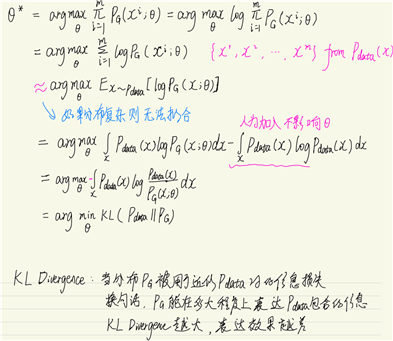 θ* = arg max_θ ∏_{i=1}^{m} P_G(x^i;θ) = arg max_θ log ∏_{i=1}^{m} P_G(x^i;θ)
= arg max_θ Σ_{i=1}^{m} log P_G(x^i;θ) {x^1, x^2, ⋯, x^m} from P_data(x)
≈ arg max_θ E_{x~P_data}[log P_G(x;θ)]
如果分布复杂则无法拟合 人为加入不影响θ
= arg max_θ ∫_x P_data(x) log P_G(x;θ)dx - ∫_x P_data(x) log P_data(x) dx
= arg max_θ - ∫_x P_data(x) log P_data(x)/P_G(x;θ) dx
= arg min_θ KL(P_data || P_G)
KL Divergence: 当分布 P_G 被用于近似 P_data 时的信息损失
换句话, P_G 能在多大程度上表达 P_data 包含的信息
KL Divergence 越大, 表达效果越差